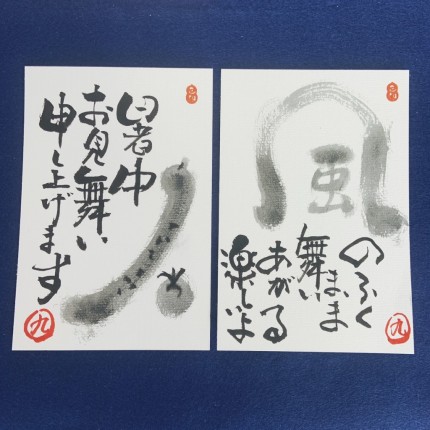 暑中
お見舞い
申し上げます
九
風
のふく
まま
舞い
あがる
楽しいよ
九